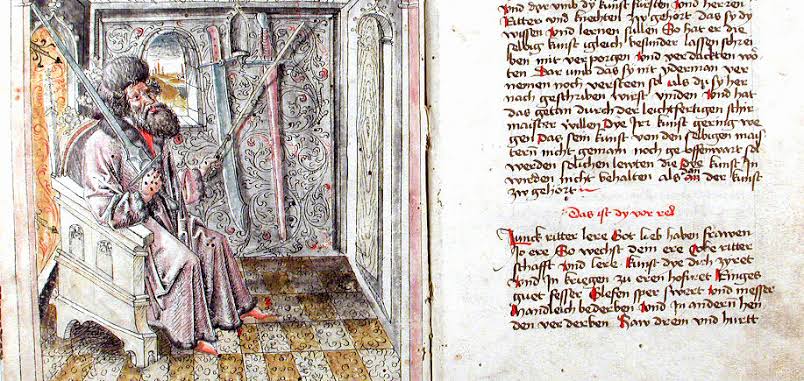 Und dye umb dy kunst fursten Und herren
Ritter und knechten zw gehort das sy dy
wissen und lernen sullen So hat er die
selbig kunst ygleich besunder lassen schrei
ben mit verporgen Und verdackten wor
ten Dar umb das sy nit yderman ver
nemen noch versteen sol als du sy her
nach geschriben wirst vinden Und hat
das getan durch der leichtfertigen schir
maister willen Dye Irr kunst gering we
gen Das sein kunst von den selbigen mais
tern nicht gemain noch geoffenwart sol
werden solichen lewten die dye kunst In
wirden nicht behalten als dan der kunst
zw gehort
Das ist dy vor red
Junck ritter lere Got lieb haben frawen
Jo ere So wechst dein ere Vbe ritter
schafft Und lere kunst dye dich zyret
Und In kriegen zu eren hofiret Ringes
guet fesser Glefen sper swert und messer
Mandleich bederben Und In andern hen
den verderben Haw drein und hurtt